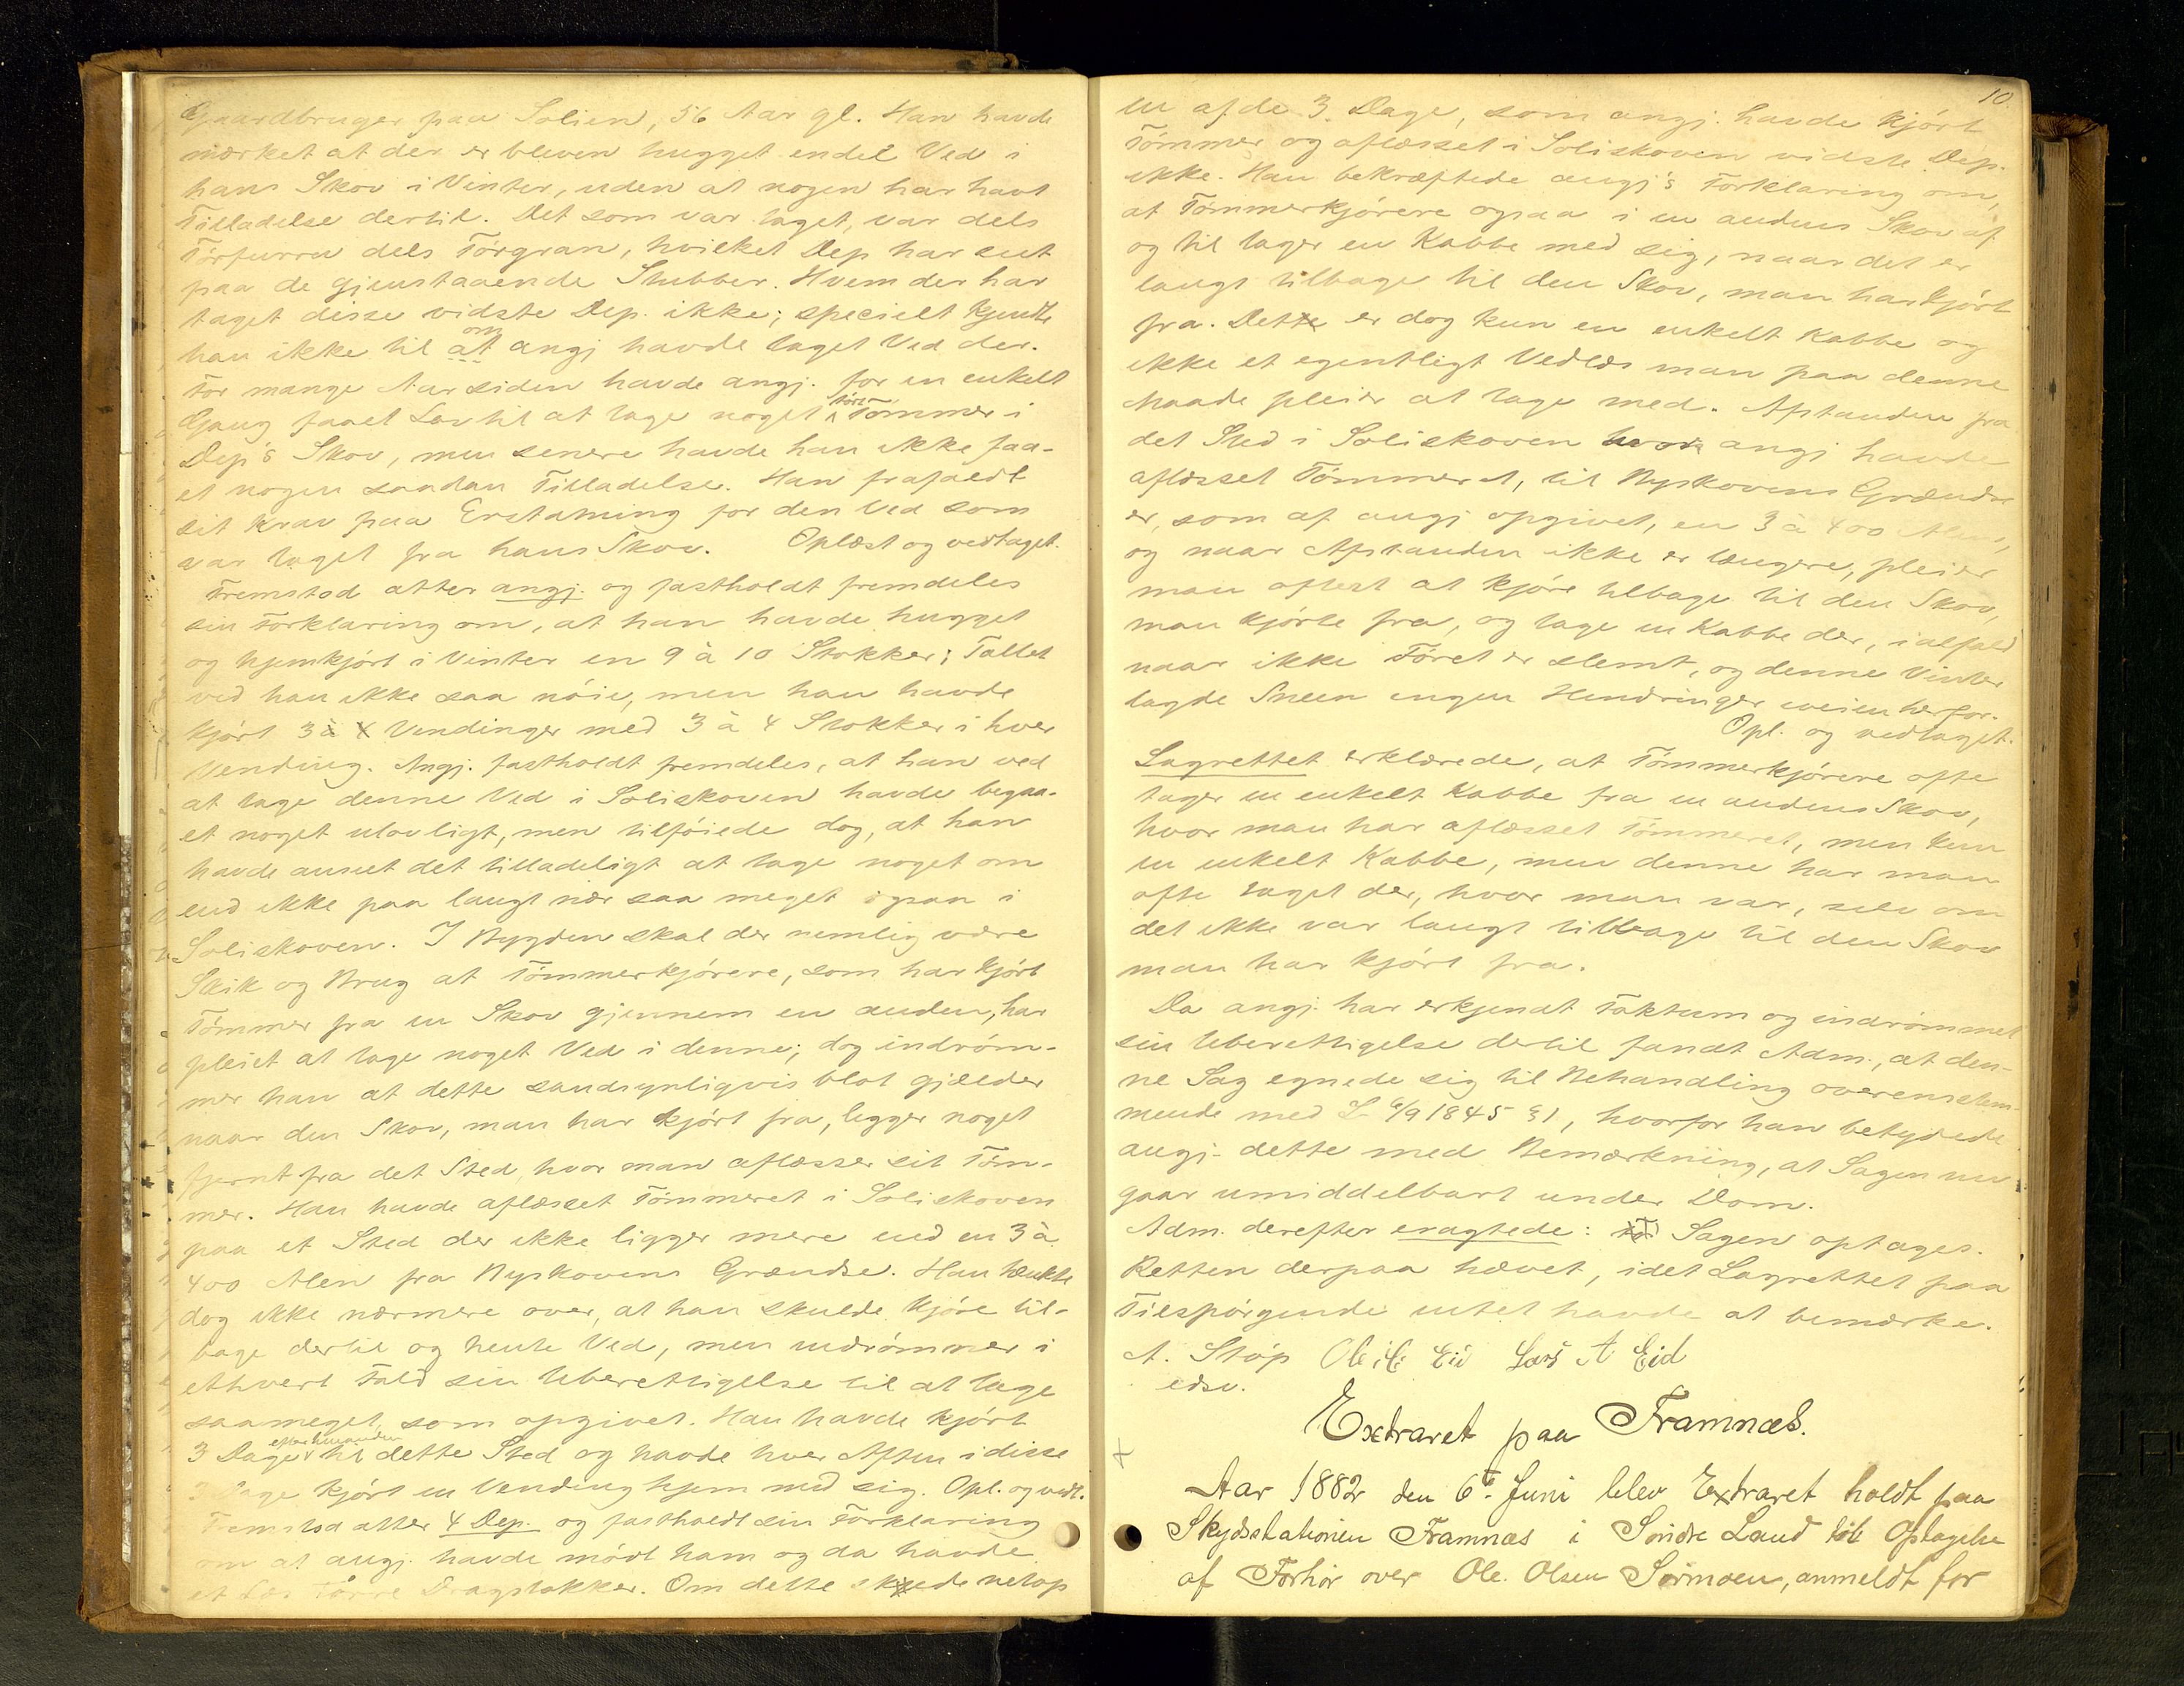 Gaardbruger paa Solien, 56 Aar gl. Han havde
mærket at der er bleven hugget endel Ved i
hans Skov i Vinter, uden at nogen har havt
Tilladelse dertil. Det som var taget, var dels
Törfurru dels Törgran, hvilket Dep har seet
paa de gjenstaaende Stubber. Hvem der har
taget disse vidste Dep. ikke; specielt kjendte
han ikke til at om angj havde taget Ved der.
For mange Aar siden havde angj. for en enkelt
Gang faaet Lov til at tage noget tört Tömmer i
Dep's Skov, men senere havde han ikke faa-
et nogen saadan Tilladelse. Han frafaldt
sit Krav paa Erstatning for den Ved som
var taget fra hans Skov. Oplæst og vedtaget.
Fremstod atter angj. og fastholdt fremdeles
sin Forklaring om, at han havde hugget
og hjemkjört i Vinter en 9 à 10 Stokker; Tallet
ved han ikke saa nöie, men han havde
kjört 3 à 4 Vendinger med 3 à 4 Stokker i hver
Vending. Angj. fastholdt fremdeles, at han ved
at tage denne Ved i Soliskoven havde begaa-
et noget ulovligt, men tilföiede dog, at han
havde anseet det tilladeligt at tage noget om
end ikke paa langt nær saa meget ogsaa i
Soliskoven. I Bygden skal der nemlig være
Skik og Brug at Tömmerkjörere, som har kjört
Tömmer fra en Skov gjennem en anden, har
pleiet at tage noget Ved i denne; dog indröm-
mer han at dette sandsynligvis blot gjælder
naar den Skov, man har kjört fra, ligger noget
fjernt fra det Sted, hvor man aflæsser sit Töm-
mer. Han havde aflæsset Tömmeret i Soliskoven
paa et Sted der ikke ligger mere end en 3 à
400 Alen fra Nyskovens Grændse. Han tænkte
dog ikke nærmere over, at han skulde kjöre til-
bage dertil og hente Ved, men indrömmer i
ethvert Fald sin Uberettigelse til at tage
saameget, som opgivet. Han havde kjört
3 Dage efter hinanden til dette Sted og havde hver Aften i disse
3 Dage kjört en Vending hjem med sig. Opl. og vedt.
Fremstod atter 4 Dep. og fastholdt sin Forklaring
om at angj. havde mödt ham og da havde
et Læs törre Dragstokker. Om dette skede netop
10.
en af de 3. Dage, som angj. havde kjört
Tömmer og aflæsset i Soliskoven vidste Dep.
ikke. Han bekræftede angj's Forklaring om,
at Tömmerkjörere ogsaa i en andens Skov af
og til tager en Kabbe med sig, naar det er
langt tilbage til den Skov, man har kjört
fra. Dette er dog kun en enkelt Kabbe og
ikke et egentligt Vedlæs man paa denne
Maade pleier at tage med. Afstanden fra
det Sted i Soliskoven hvor angj havde
aflæsset Tömmeret, til Nyskovens Grændse
er, som af angj opgivet, en 3 à 400 Alen,
og naar Afstanden ikke er længere, pleier
man oftest at kjöre tilbage til den Skov,
man kjörte fra, og tage en Kabbe der, ialfald
naar ikke Föret er slemt, og denne Vinter
lagde Sneen ingen Hindringer iveien herfor.
Opl. og vedtaget.
Lagrettet erklærede, at Tömmerkjörere ofte
tager en enkelt Kabbe fra en andens Skov,
hvor man har aflæsset Tömmeret, men kun
en enkelt Kabbe, men denne har man
ofte taget der, hvor man var, selv om
det ikke var langt tilbage til den Skov
man har kjört fra.
Da angj. har erkjendt Faktum og indrömmet
sin Uberettigelse dertil fandt Adm., at den-
ne Sag egnede sig til Behandling overenstem-
mende med L 6/9 1845 § 1, hvorfor han betydede
angj. dette med Bemærkning, at Sagen nu
gaar umiddelbart under Dom.
Adm. derefter eragtede: Sagen optages.
Retten derpaa hævet, idet Lagrettet paa
Tilspörgende intet havde at bemærke.
A. Stöp Ole Eid Lars A Eid
edsv.
Extraret paa Framnæs.
Aar 1882 den 6te Juni blev Extraret holdt paa
Skydsstationen Framnæs i Söndre Land till Optagelse
af Forhör over Ole Olsen Sörmoen, anmeldt for